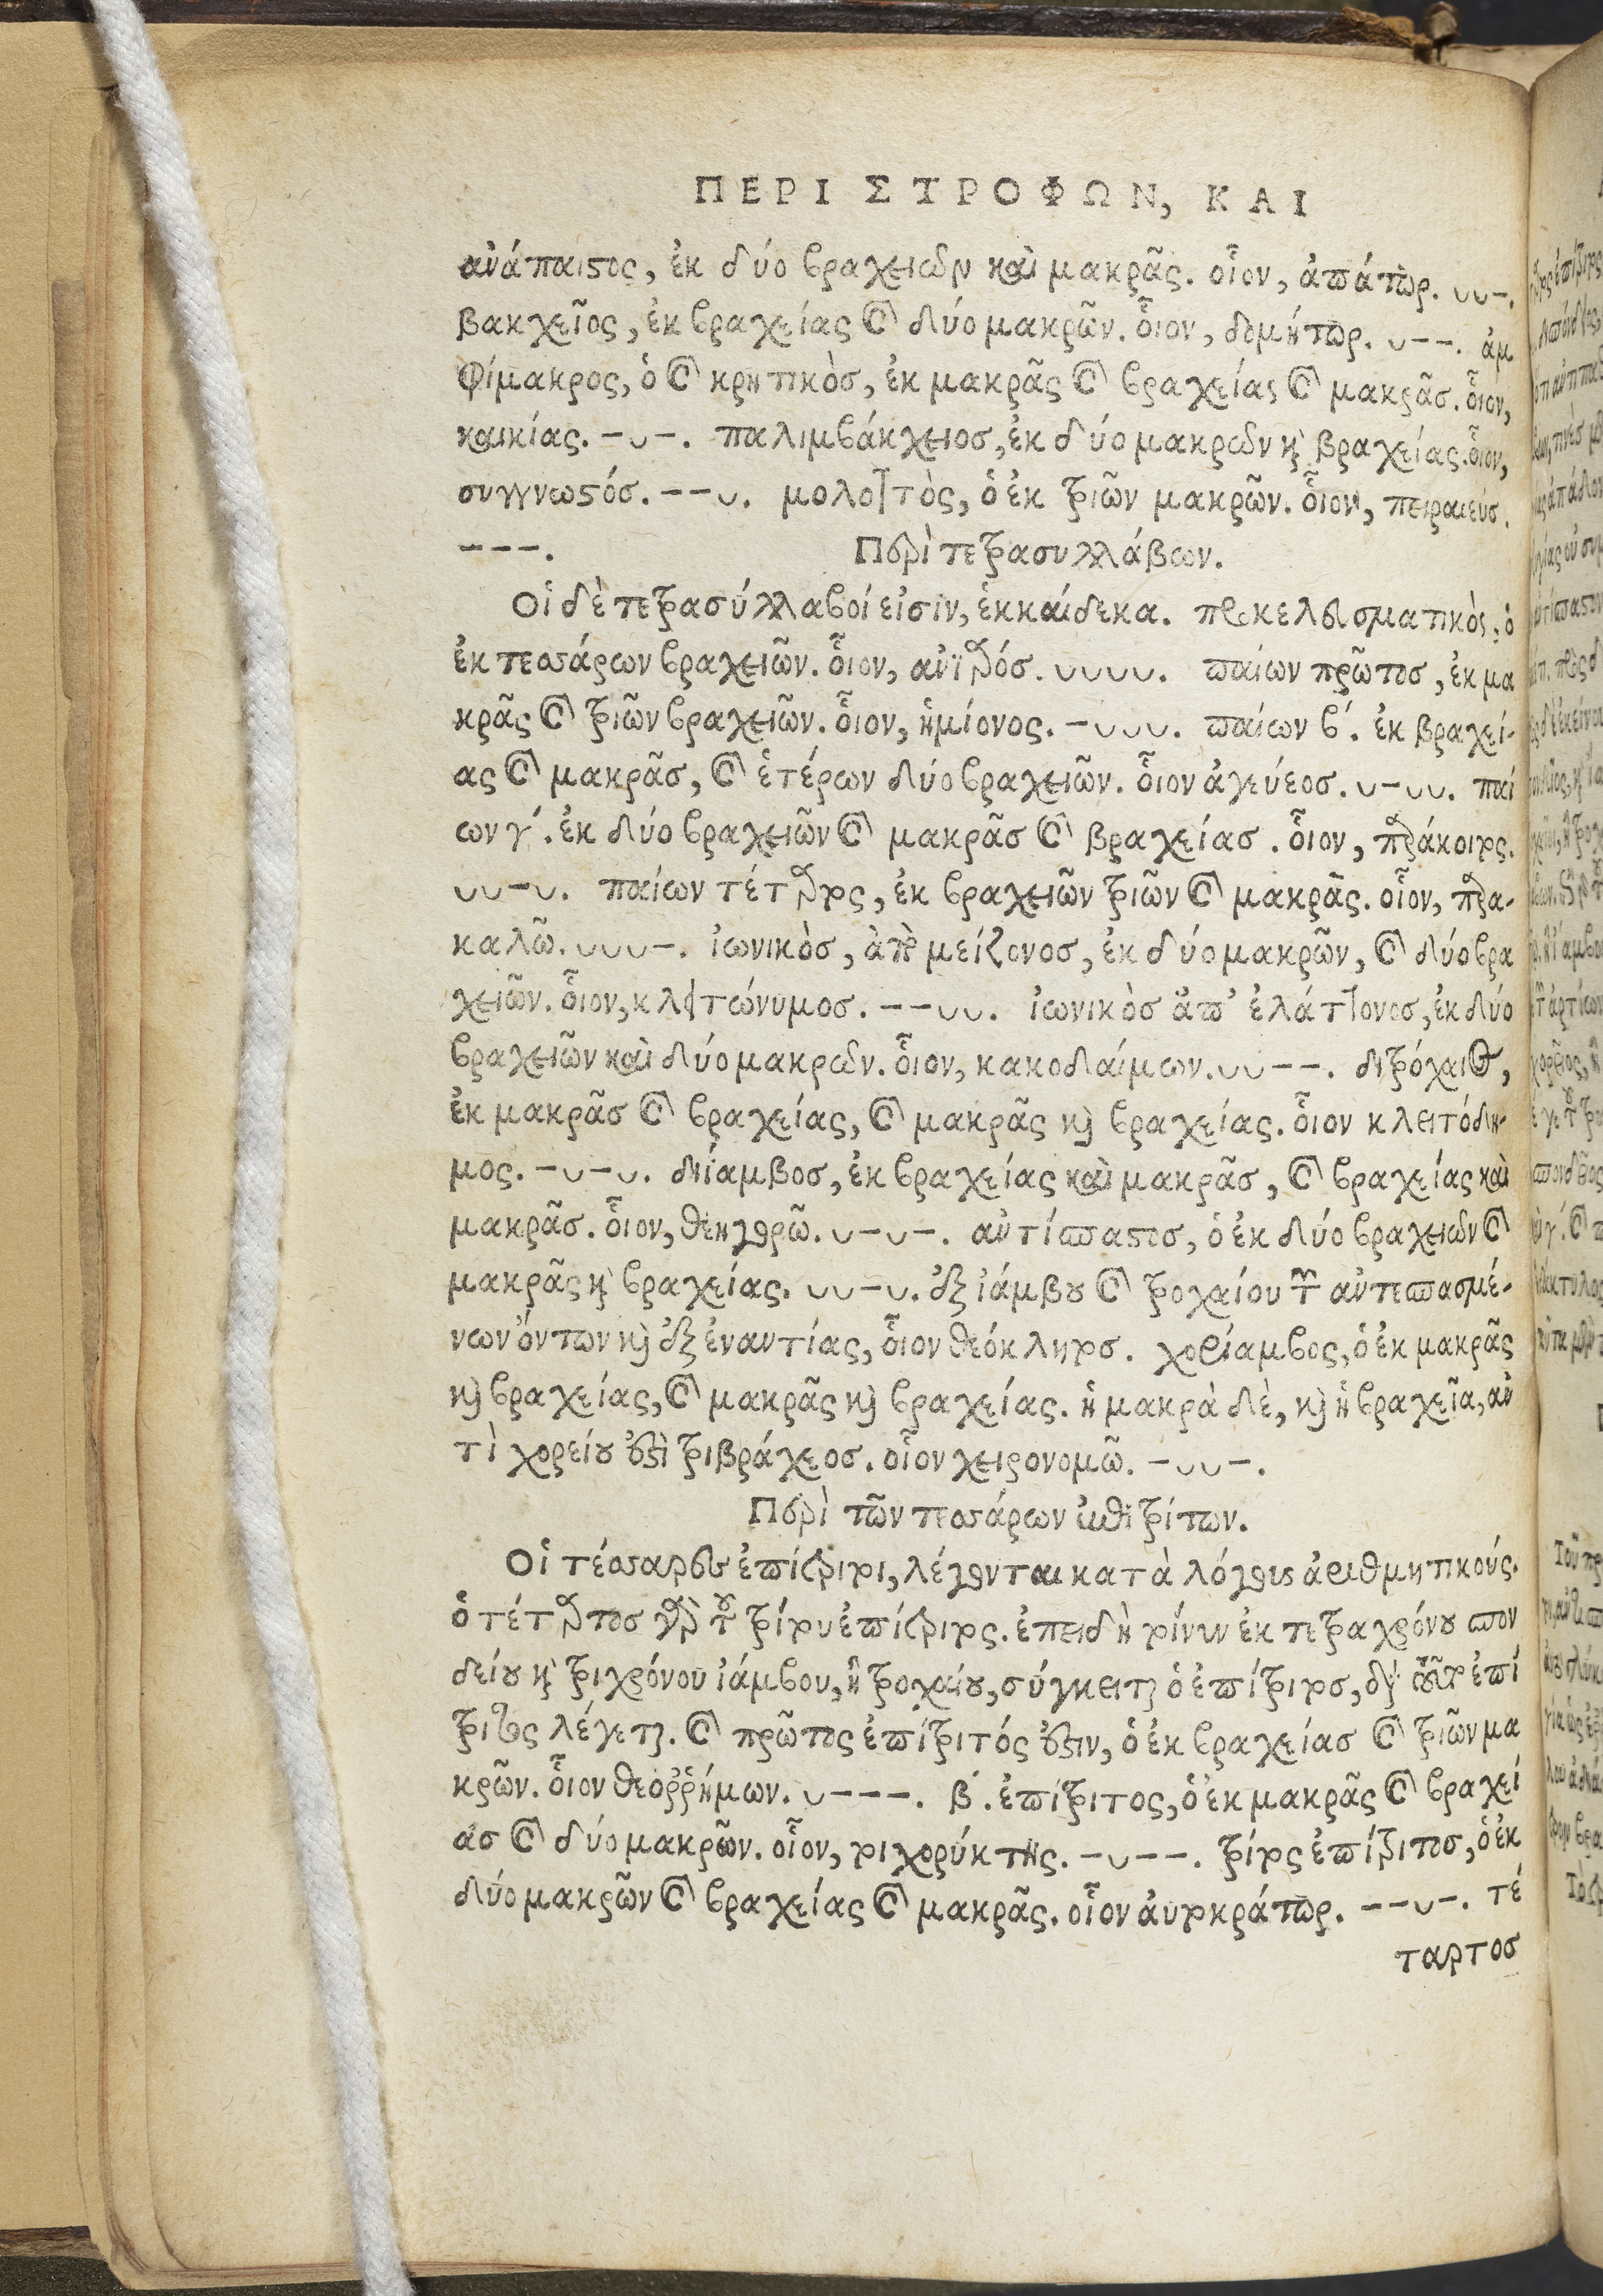 ΠΕΡΙ ΣΤΡΟΦΩΝ, ΚΑΙ
ἀνάπαιστος, ἐκ δύο βραχειῶν καὶ μακρᾶς. οἷον, ἀπάτωρ. ᴗᴗ-.
βακχεῖος, ἐκ βραχείας καὶ δύο μακρῶν. οἷον, δομήτωρ. ᴗ--. ἀμ
φίμακρος, ὁ καὶ κρητικὸσ, ἐκ μακρᾶς καὶ βραχείας καὶ μακρᾶσ. οἷον,
καικίας. -ᴗ-. παλιμβάκχειοσ, ἐκ δύο μακρῶν καὶ βραχείας. οἷον,
συγγνωστόσ. --ᴗ. μολοττὸς, ὁ ἐκ τριῶν μακρῶν. οἷον, πειραιεύσ.
---. Περὶ τετρασυλλάβων.
Οἱ δὲ τετρασύλλαβοί εἰσιν, ἑκκαίδεκα. προκελευσματικὸς, ὁ
ἐκ τεσσάρων βραχειῶν. οἷον, ᴗᴗᴗᴗ. παίων πρῶτοσ, ἐκ μα
κρᾶς καὶ τριῶν βραχειῶν. οἷον, ἡμίονος. -ᴗᴗᴗ. παίων β΄. ἐκ βραχεί-
ας καὶ μακρᾶσ, καὶ ἑτέρων δύο βραχειῶν. οἷον ἀγεύεοσ. ᴗ-ᴗᴗ. παί
ων γ΄. ἐκ δύο βραχειῶν καὶ μακρᾶσ καὶ βραχείασ. οἷον, παράκοιτος.
ᴗᴗ-ᴗ. παίων τέταρτος, ἐκ βραχειῶν τριῶν καὶ μακρᾶς. οἷον, παρα-
καλῶ. ᴗᴗᴗ-. ἰωνικὸσ, ἀπὸ μείζονοσ, ἐκ δύο μακρῶν, καὶ δύο βρα
χειῶν. οἷον, κλειτώνυμοσ. --ᴗᴗ. ἰωνικὸσ ἀπ' ἐλάττονοσ, ἐκ δύο
βραχειῶν καὶ δύο μακρῶν. οἷον, κακοδαίμων. ᴗᴗ--. διτρόχαιος,
ἐκ μακρᾶσ καὶ βραχείας, καὶ μακρᾶς καὶ βραχείας. οἷον κλειτόδη-
μος. -ᴗ-ᴗ. διίαμβοσ, ἐκ βραχείας καὶ μακρᾶσ, καὶ βραχείας καὶ
μακρᾶσ. οἷον, ᴗ-ᴗ-. ἀντίσπαστοσ, ὁ ἐκ δύο βραχειῶν καὶ
μακρᾶς καὶ βραχείας. ᴗᴗ-ᴗ. ἐξ ἰάμβου καὶ τροχαίου τῶν ἀντεσπασμέ-
νων ὄντων καὶ ἐξ ἐναντίας, οἷον θεόκλητοσ. χορίαμβος, ὁ ἐκ μακρᾶς
καὶ βραχείας, καὶ μακρᾶς καὶ βραχείας. ἡ μακρὰ δὲ, καὶ ἡ βραχεῖα, ἀν
τὶ χορείου ἐστὶ τριβράχεοσ. οἷον χειρονομῶ. -ᴗᴗ-.
Περὶ τῶν τεσσάρων ἐπιτρίτων.
Οἱ τέσσαρες ἐπίτριτοι, λέγονται κατὰ λόγους ἀριθμητικούς.
ὁ τέταρτοσ γὰρ τοῦ τρίτου ἐπίτριτος. ἐπειδὴ τοίνυν ἐκ τετραχρόνου σπον
δείου καὶ τριχρόνου ἰάμβου, ἢ τροχαίου, σύγκειται ὁ ἐπίτριτοσ, διὰ τοῦτο ἐπί
τριτος λέγεται. καὶ πρῶτος ἐπίτριτός ἐστιν, ὁ ἐκ βραχείασ καὶ τριῶν μα
κρῶν. οἷον θεοῤῥήμων. ᴗ---. β΄. ἐπίτριτος, ὁ ἐκ μακρᾶς καὶ βραχεί
ασ καὶ δύο μακρῶν. οἷον, τοιχορύκτης. -ᴗ--. τρίτος ἐπίτριτοσ, ὁ ἐκ
δύο μακρῶν καὶ βραχείας καὶ μακρᾶς. οἷον αὐτοκράτωρ. --ᴗ-. τέ
ταρτοσ